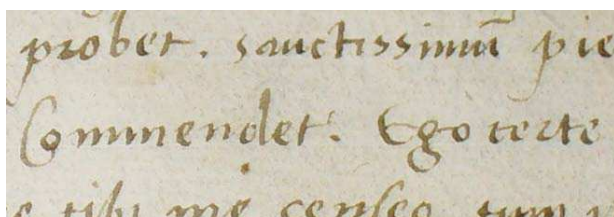 probet. sanctissimū pie
Commendet. Ego certe
tibi me censeo sum